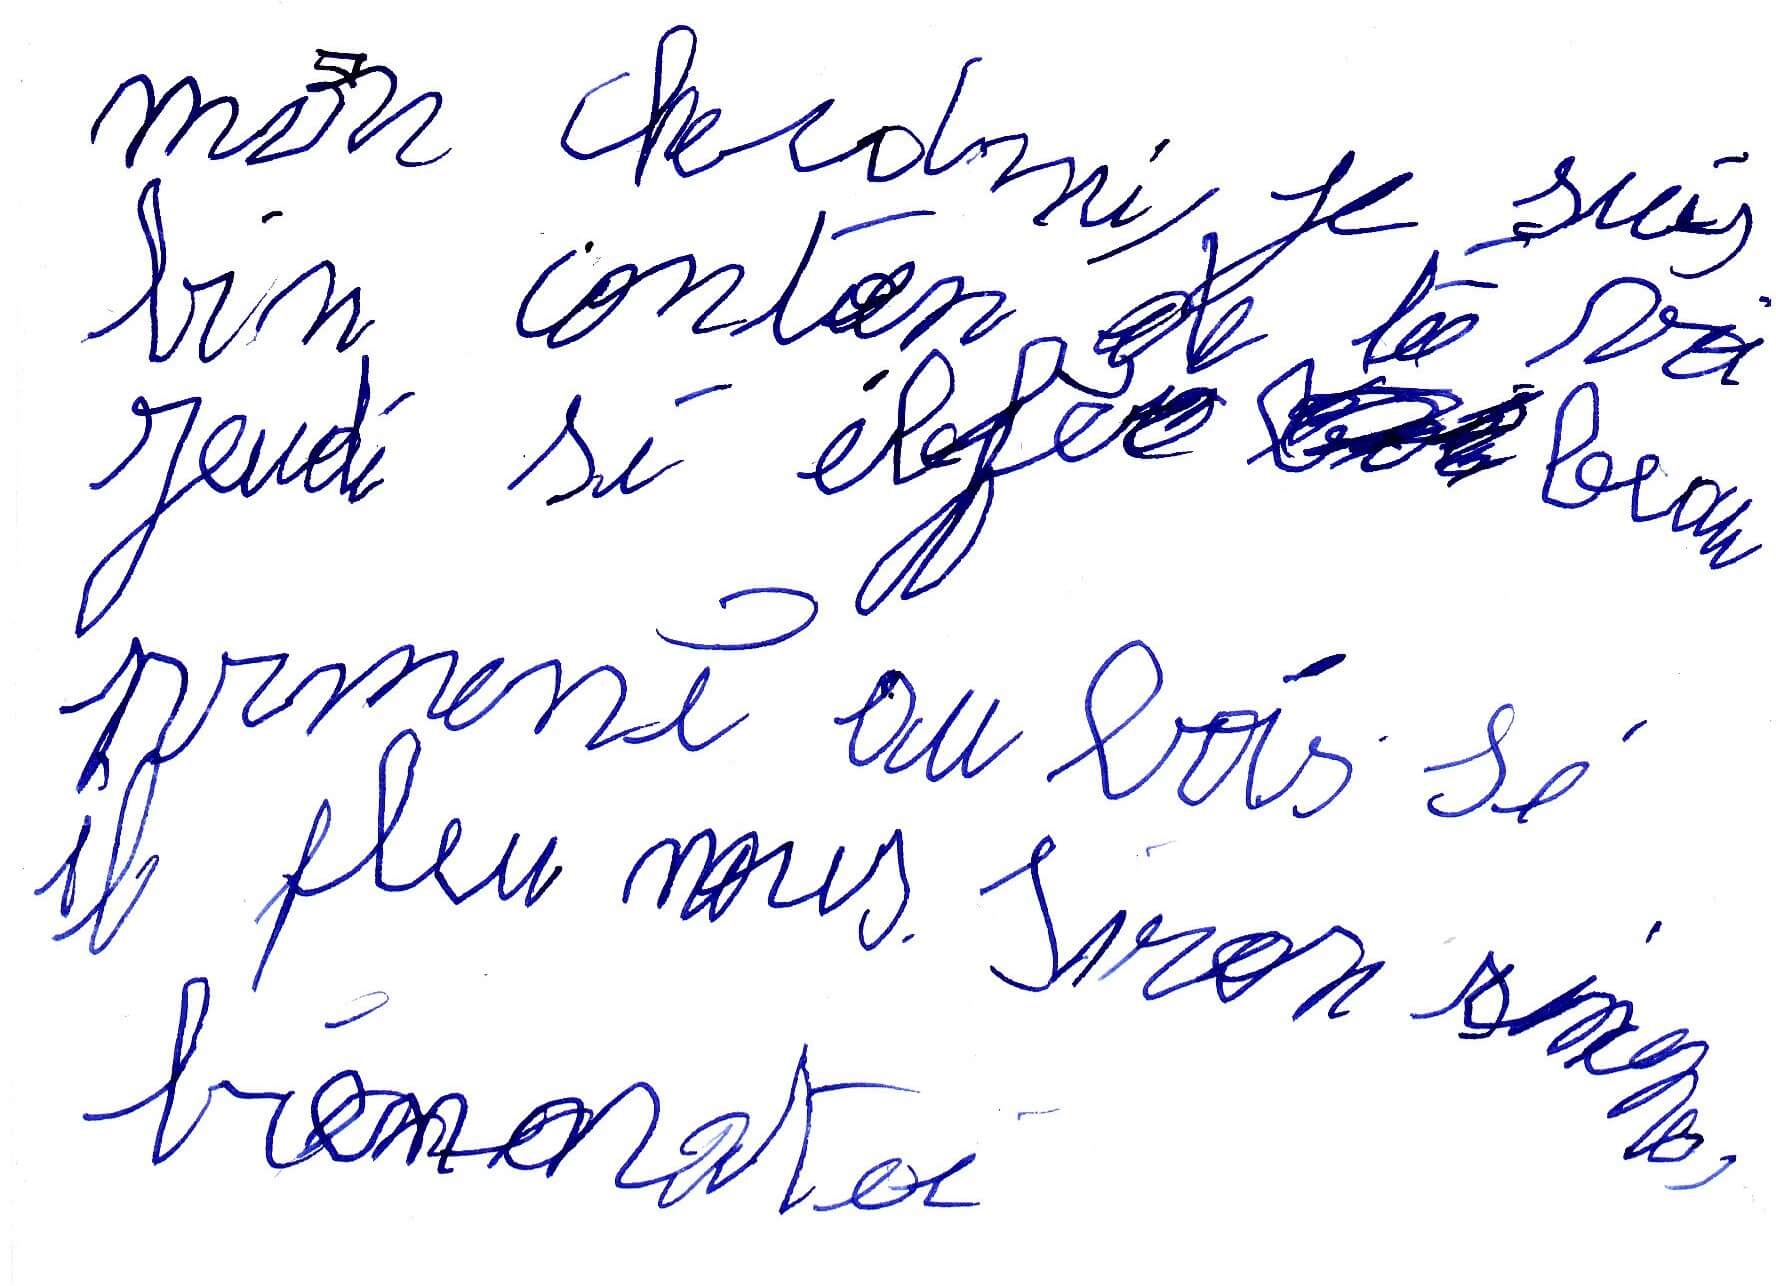 mon cher ami, je suis
bin contan de te voi
jeudi si il fée beau
prmené au bois si
il pleu nous iron
bien a toi